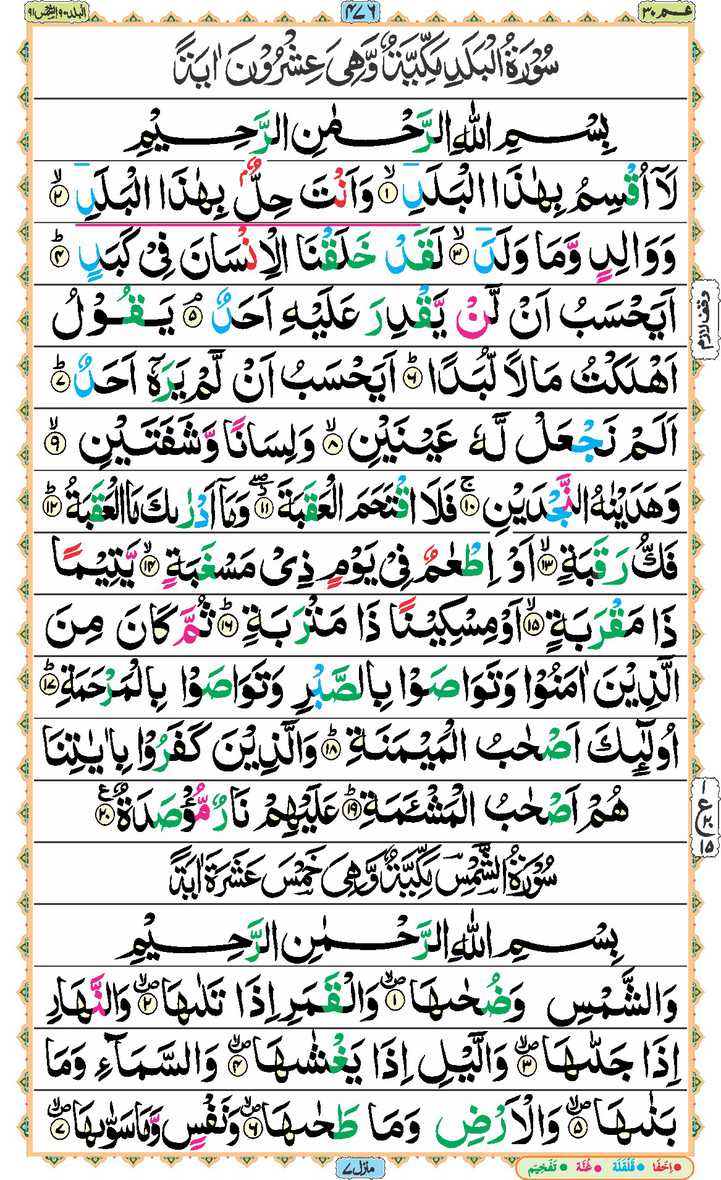 عم ۳۰
۴۷۶
البلد ۹۰ الشمس ۹۱
سُوْرَةُ الْبَلَدِ مَكِّيَّةٌ وَّهِيَ عِشْرُوْنَ اٰيَةً
بِسْمِ اللّٰهِ الرَّحْمٰنِ الرَّحِيْمِ
لَاۤ اُقْسِمُ بِهٰذَا الْبَلَدِۙ۱ وَاَنْتَ حِلٌّۢ بِهٰذَا الْبَلَدِۙ۲
وَوَالِدٍ وَّمَا وَلَدَۙ۳ لَقَدْ خَلَقْنَا الْاِنْسَانَ فِيْ كَبَدٍؕ۴
اَيَحْسَبُ اَنْ لَّنْ يَّقْدِرَ عَلَيْهِ اَحَدٌۘ۵ يَقُوْلُ
وقف لازم
اَهْلَكْتُ مَالًا لُّبَدًاؕ۶ اَيَحْسَبُ اَنْ لَّمْ يَرَهٗۤ اَحَدٌؕ۷
اَلَمْ نَجْعَلْ لَّهٗ عَيْنَيْنِۙ۸ وَلِسَانًا وَّشَفَتَيْنِۙ۹
وَهَدَيْنٰهُ النَّجْدَيْنِۚ۱۰ فَلَا اقْتَحَمَ الْعَقَبَةَؗۖ۱۱ وَمَاۤ اَدْرٰىكَ مَا الْعَقَبَةُؕ۱۲
فَكُّ رَقَبَةٍۙ۱۳ اَوْ اِطْعٰمٌ فِيْ يَوْمٍ ذِيْ مَسْغَبَةٍۙ۱۴ يَّتِيْمًا
ذَا مَقْرَبَةٍۙ۱۵ اَوْ مِسْكِيْنًا ذَا مَتْرَبَةٍؕ۱۶ ثُمَّ كَانَ مِنَ
الَّذِيْنَ اٰمَنُوْا وَتَوَاصَوْا بِالصَّبْرِ وَتَوَاصَوْا بِالْمَرْحَمَةِؕ۱۷
اُولٰٓئِكَ اَصْحٰبُ الْمَيْمَنَةِؕ۱۸ وَالَّذِيْنَ كَفَرُوْا بِاٰيٰتِنَا
هُمْ اَصْحٰبُ الْمَشْـَٔمَةِؕ۱۹ عَلَيْهِمْ نَارٌ مُّؤْصَدَةٌ۲۰
ع ۱۵
سُوْرَةُ الشَّمْسِ مَكِّيَّةٌ وَّهِيَ خَمْسَ عَشَرَةَ اٰيَةً
بِسْمِ اللّٰهِ الرَّحْمٰنِ الرَّحِيْمِ
وَالشَّمْسِ وَضُحٰىهَا۪ۙ۱ وَالْقَمَرِ اِذَا تَلٰىهَا۪ۙ۲ وَالنَّهَارِ
اِذَا جَلّٰىهَا۪ۙ۳ وَالَّيْلِ اِذَا يَغْشٰىهَا۪ۙ۴ وَالسَّمَآءِ وَمَا
بَنٰىهَا۪ۙ۵ وَالْاَرْضِ وَمَا طَحٰىهَا۪ۙ۶ وَنَفْسٍ وَّمَا سَوّٰىهَا۪ۙ۷
منزل ۷
اِخْفَا قَلْقَلَة غُنَّة تَفْخِيْم